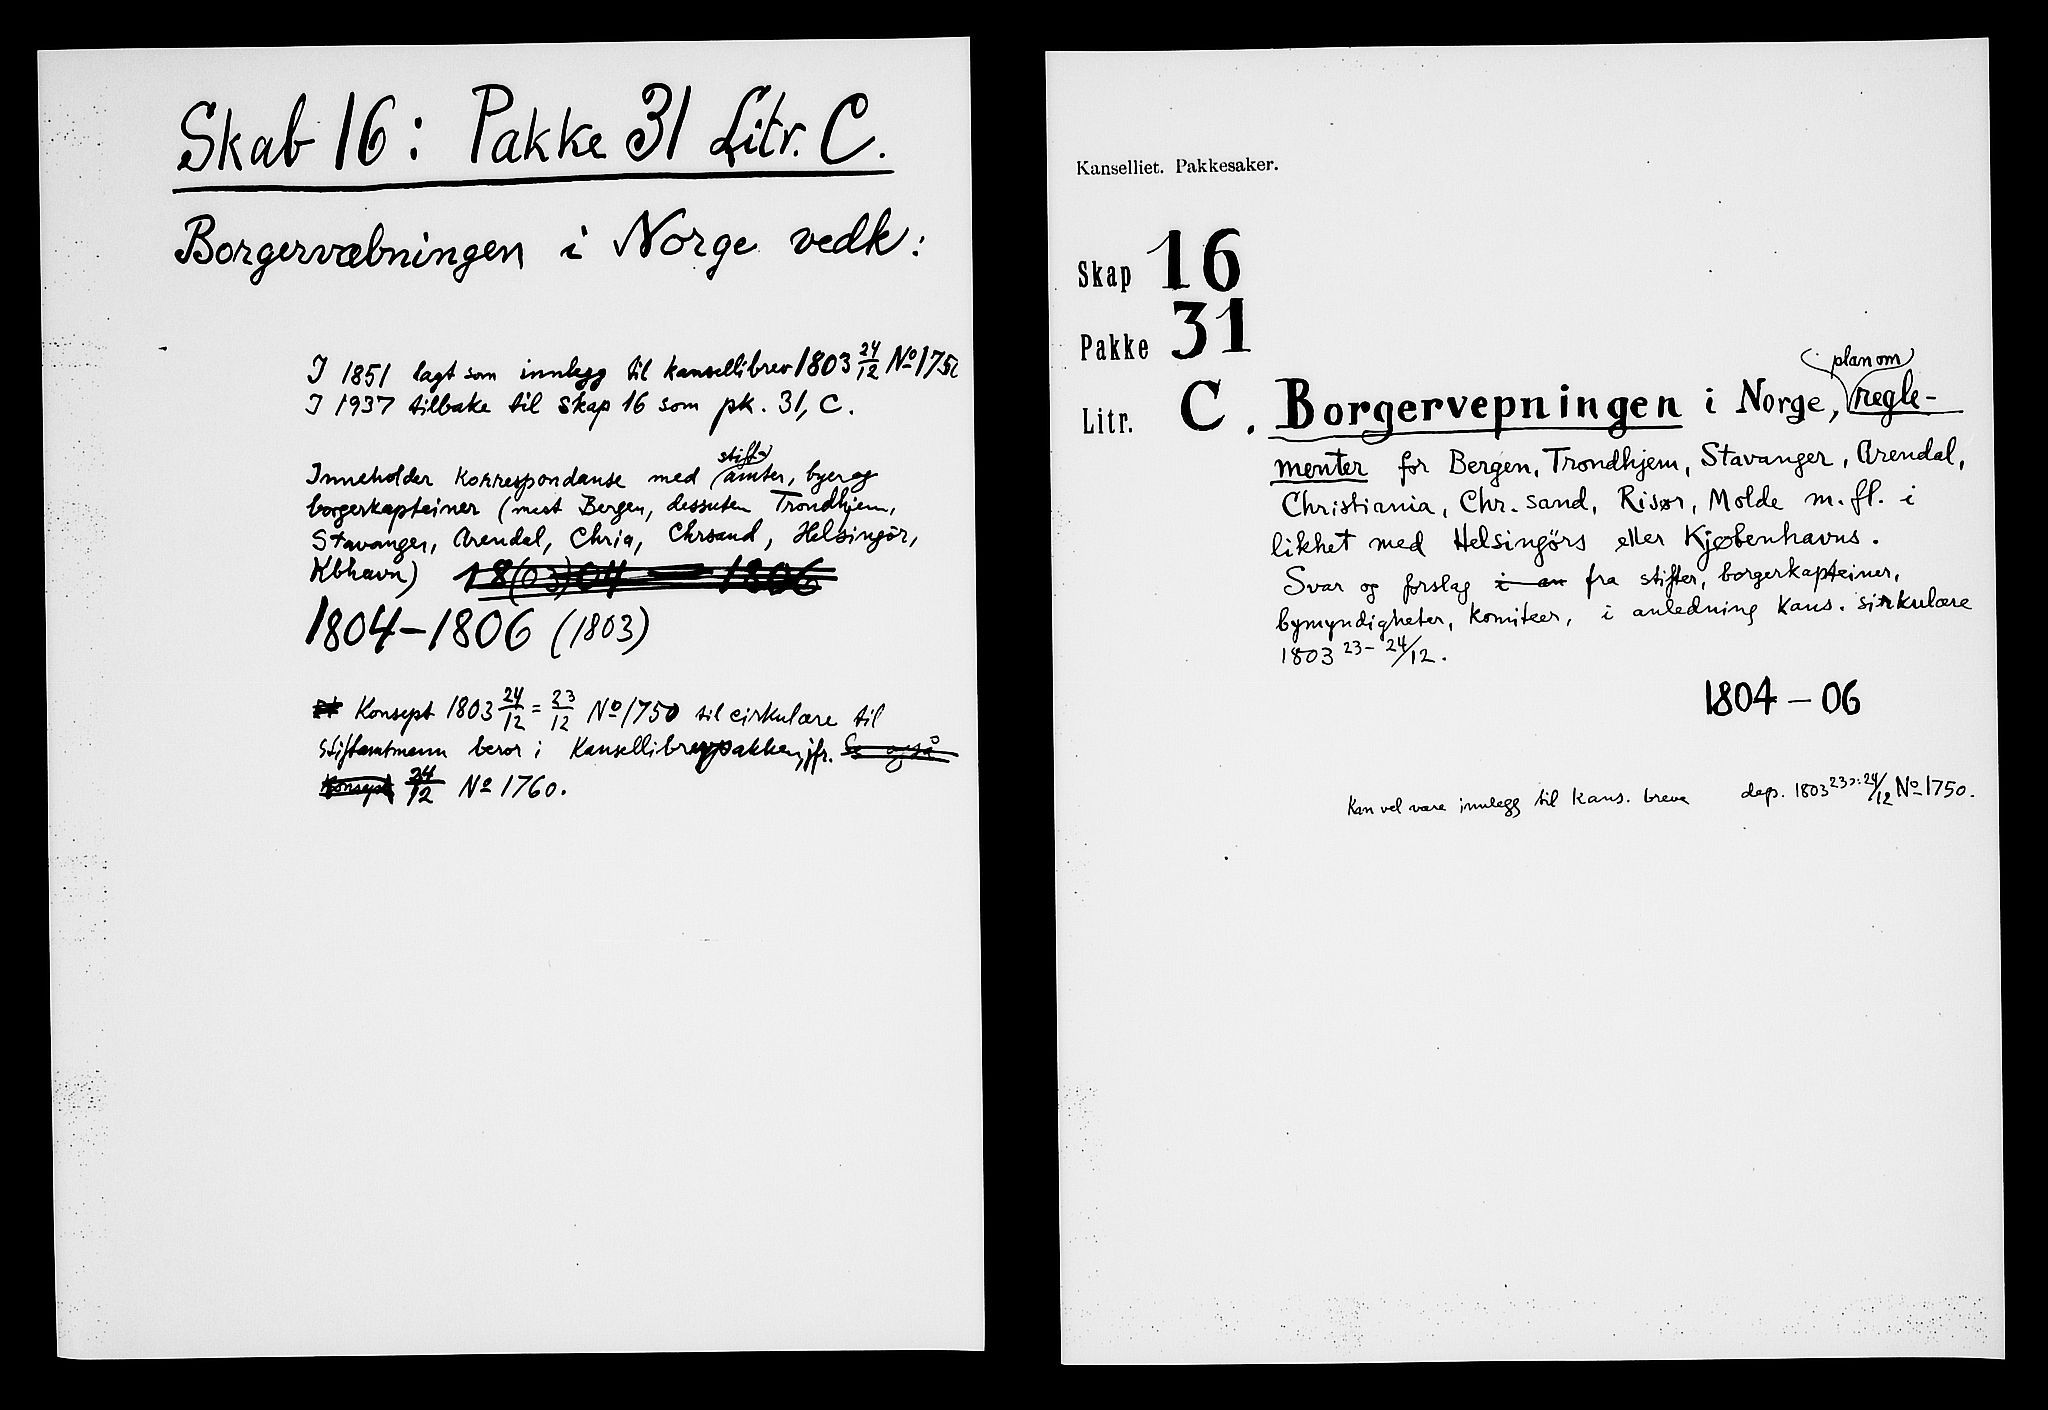 Skab 16: Pakke 31 Litr. C.
Borgervæbningen i Norge vedk:
I 1851 lagt som innlegg til kansellibrev 1803 24/12 No 175
I 1937 tilbake til skap 16 som pk. 31, C.
stifts
Inneholder korrespondanse med amter, byer og
borgerkapteiner (mest Bergen, dessuten Trondhjem,
Stavanger, Arendal, Chria, Chrsand, Helsingör,
Kbhavn) 18(03)04 — 1806
1804-1806 (1803)
Konsept 1803 24/12 = 23/12 No 1750 til cirkulære til
Stiftamtmenn beror i Kansellibrevpakken, jfr. Se også
Konsept 24/12 No 1760.
Kanselliet. Pakkesaker.
Skap 16
Pakke 31
(plan om)
Litr. C. Borgervepningen i Norge, regle-
menter for Bergen, Trondhjem, Stavanger, Arendal,
Christiania, Chr.sand, Risør, Molde m.fl. i
likhet med Helsingörs eller Kjøbenhavns.
Svar og forslag i an fra stifter, borgerkapteiner,
bymyndigheter, komiteer, i anledning kans. sirkulære
1803 23-24/12.
1804-06
Kan vel være innlegg til kans. breve dep. 1803 23>:24/12 No 1750.